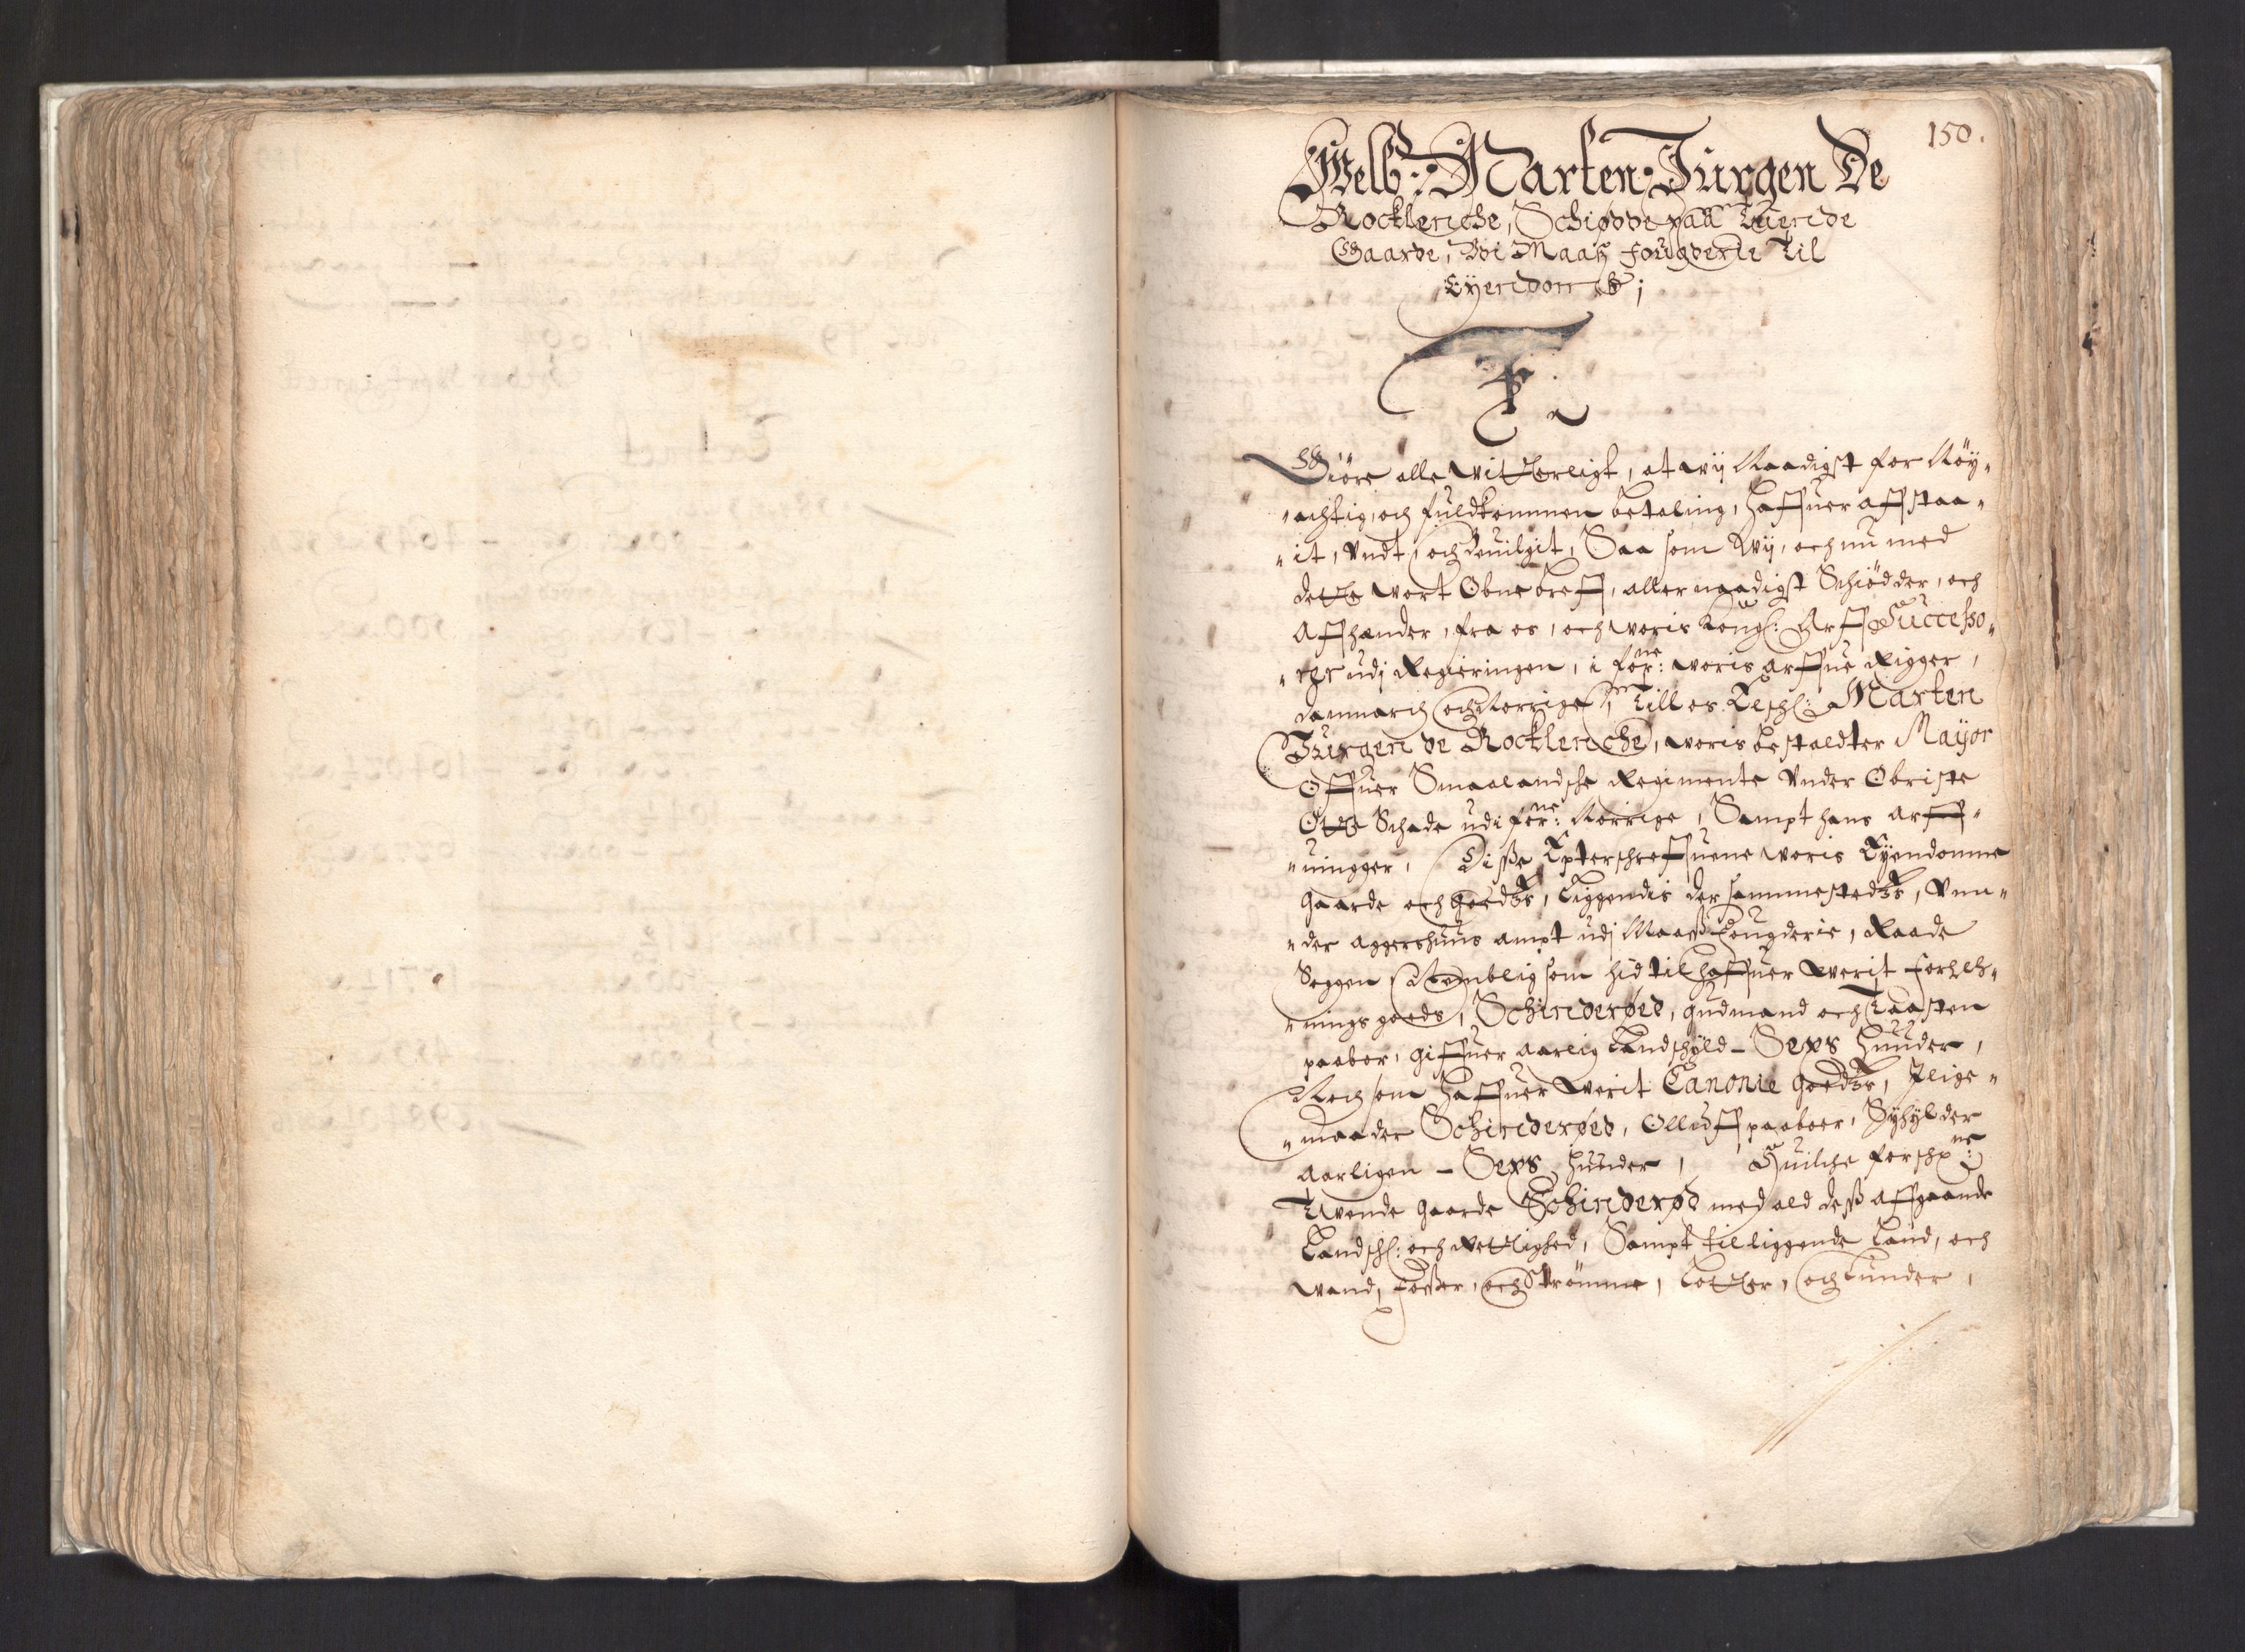 150.
Welb: Marten Jürgen De
Rocklenche, Schiøde paa Tuende
Gaarde, Udi Maaß fougderie Til
Eyendomb;
F.
Giöre alle witterligt, at wij Naadigst for Nöy¬
¬achtig, och fuldkommen betaling, haffuer affstaa¬
¬it, Undt, och Beuilgit, Saa som Wij, och nu med
dette wort Obne breff, aller naadigst Schiödder, och
Affhænder, fra os, och woris Kongl: Arff Successo¬
¬rer udj Regieringen, i forne: woris arffue Rigger,
danmarch och Norrige, Till os Elschl: Marten
Jürgen de Rocklenche, woris bestaldter Mayor
Offuer Smaalandsche Regimente Under Obriste
Otte Schade udi forne: Norrige, Sampt hans arff¬
¬uingger, Diße Epterschreffuene woris Eyendomme
Gaarde och goedtz, Liggendis der sammestedtz, Unn¬
¬der aggershuus ampt udj Maaß Fougderie, Raade
Soggen som hid til haffuer werit Forleh¬
¬nings goeds, Schinderøed, gudmand och Taasten
paabor, giffuer aarlig Landschyld – Sexs Huuder,
Noch som haffuer werit Canonie goedtz, Jlige¬
¬maader Schinderøed, Olluff paaboer, Schylder
aarligen – Sexs huuder, Huilche forschrne:
Tuende gaarde Schinderød med ald deß affgaaende
Landschl: och Rettighed, Sampt tilliggende Land, och
wand, foßer, och Strömme, Lotter, och Lunder,